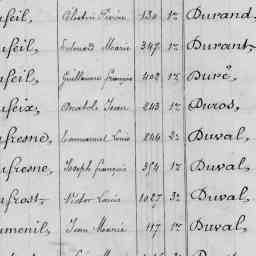 ufeil, Célestin Pierre 130 1re Durand,
ufeil, Edouard Marie 347 1re Durant,
ufeil, Guillaume François 402 1re Duré,
ufeix, Anatole Jean 243 1re Duros,
ufresne, Emmanuel Louis 244 2e Duval,
ufresne, Joseph François 354 1re Duval,
ufrost, Victor Louis 1027 3e Duval,
umenil, Jean Marie 117 1re Duval,